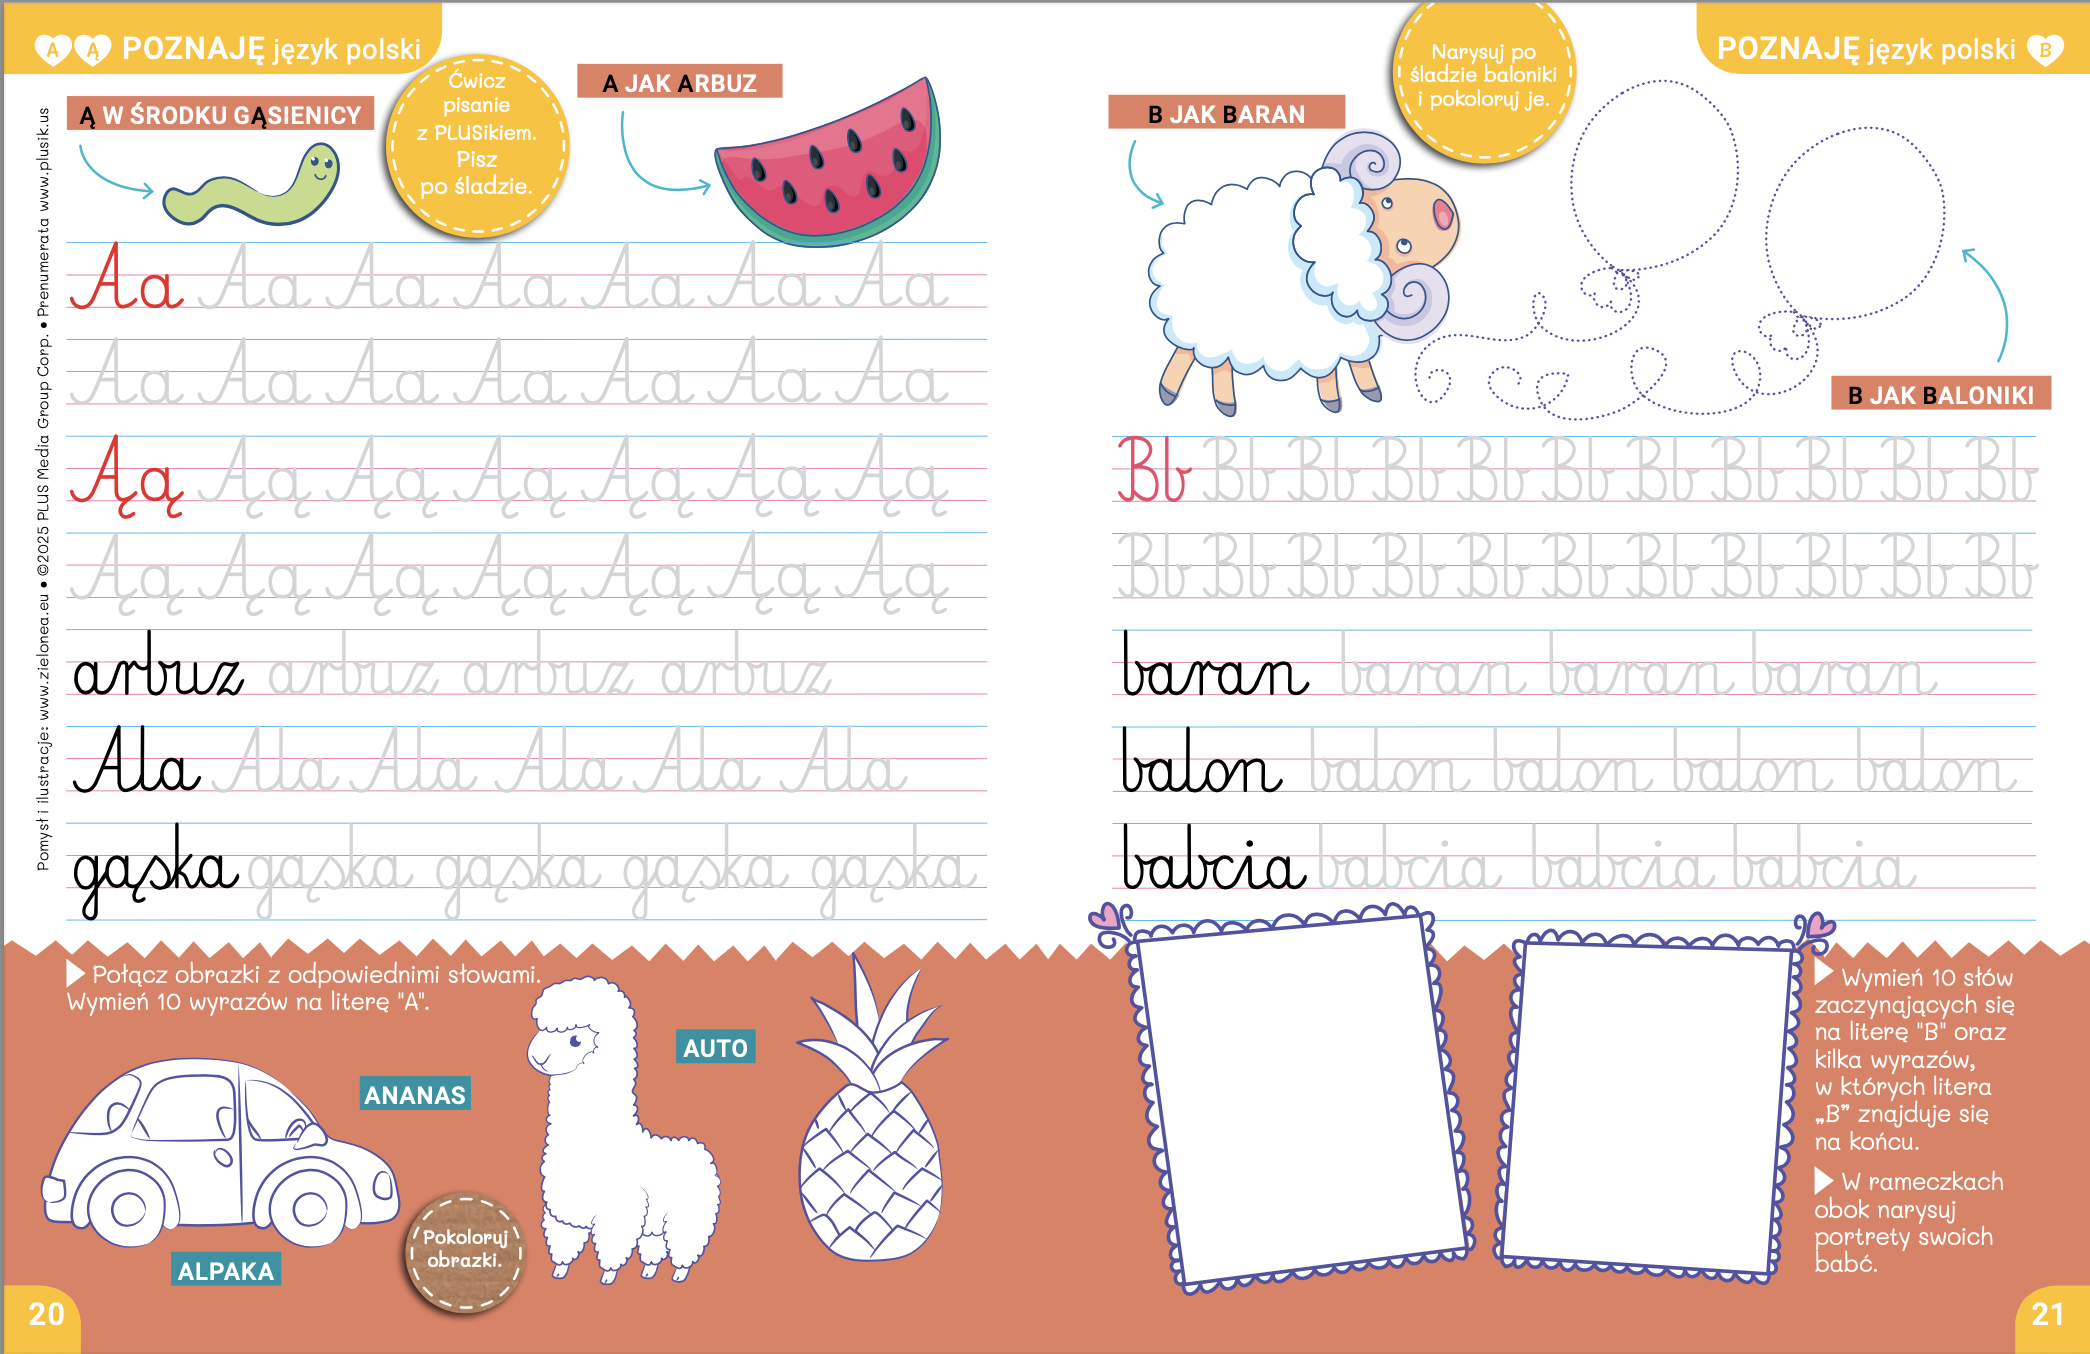 A Ą POZNAJĘ język polski
Ą W ŚRODKU GĄSIENICY
Ćwicz
pisanie
z PLUSikiem.
Pisz
po śladzie.
A JAK ARBUZ
Pomysł i ilustracje: www.zielonea.eu • ©2025 PLUS Media Group Corp. • Prenumerata www.plusik.us
Aa Aa Aa Aa Aa Aa Aa
Aa Aa Aa Aa Aa Aa Aa
Ąą Ąą Ąą Ąą Ąą Ąą Ąą
Ąą Ąą Ąą Ąą Ąą Ąą Ąą
arbuz arbuz arbuz arbuz
Ala Ala Ala Ala Ala Ala
gąska gąska gąska gąska gąska
Połącz obrazki z odpowiednimi słowami.
Wymień 10 wyrazów na literę "A".
AUTO
ANANAS
ALPAKA
Pokoloruj
obrazki.
20
POZNAJĘ język polski B
B JAK BARAN
Narysuj po
śladzie baloniki
i pokoloruj je.
B JAK BALONIKI
Bb Bb Bb Bb Bb Bb Bb Bb Bb Bb Bb
Bb Bb Bb Bb Bb Bb Bb Bb Bb Bb Bb
baran baran baran baran
balon balon balon balon balon
babcia babcia babcia babcia
Wymień 10 słów
zaczynających się
na literę "B" oraz
kilka wyrazów,
w których litera
„B” znajduje się
na końcu.
W rameczkach
obok narysuj
portrety swoich
babć.
21